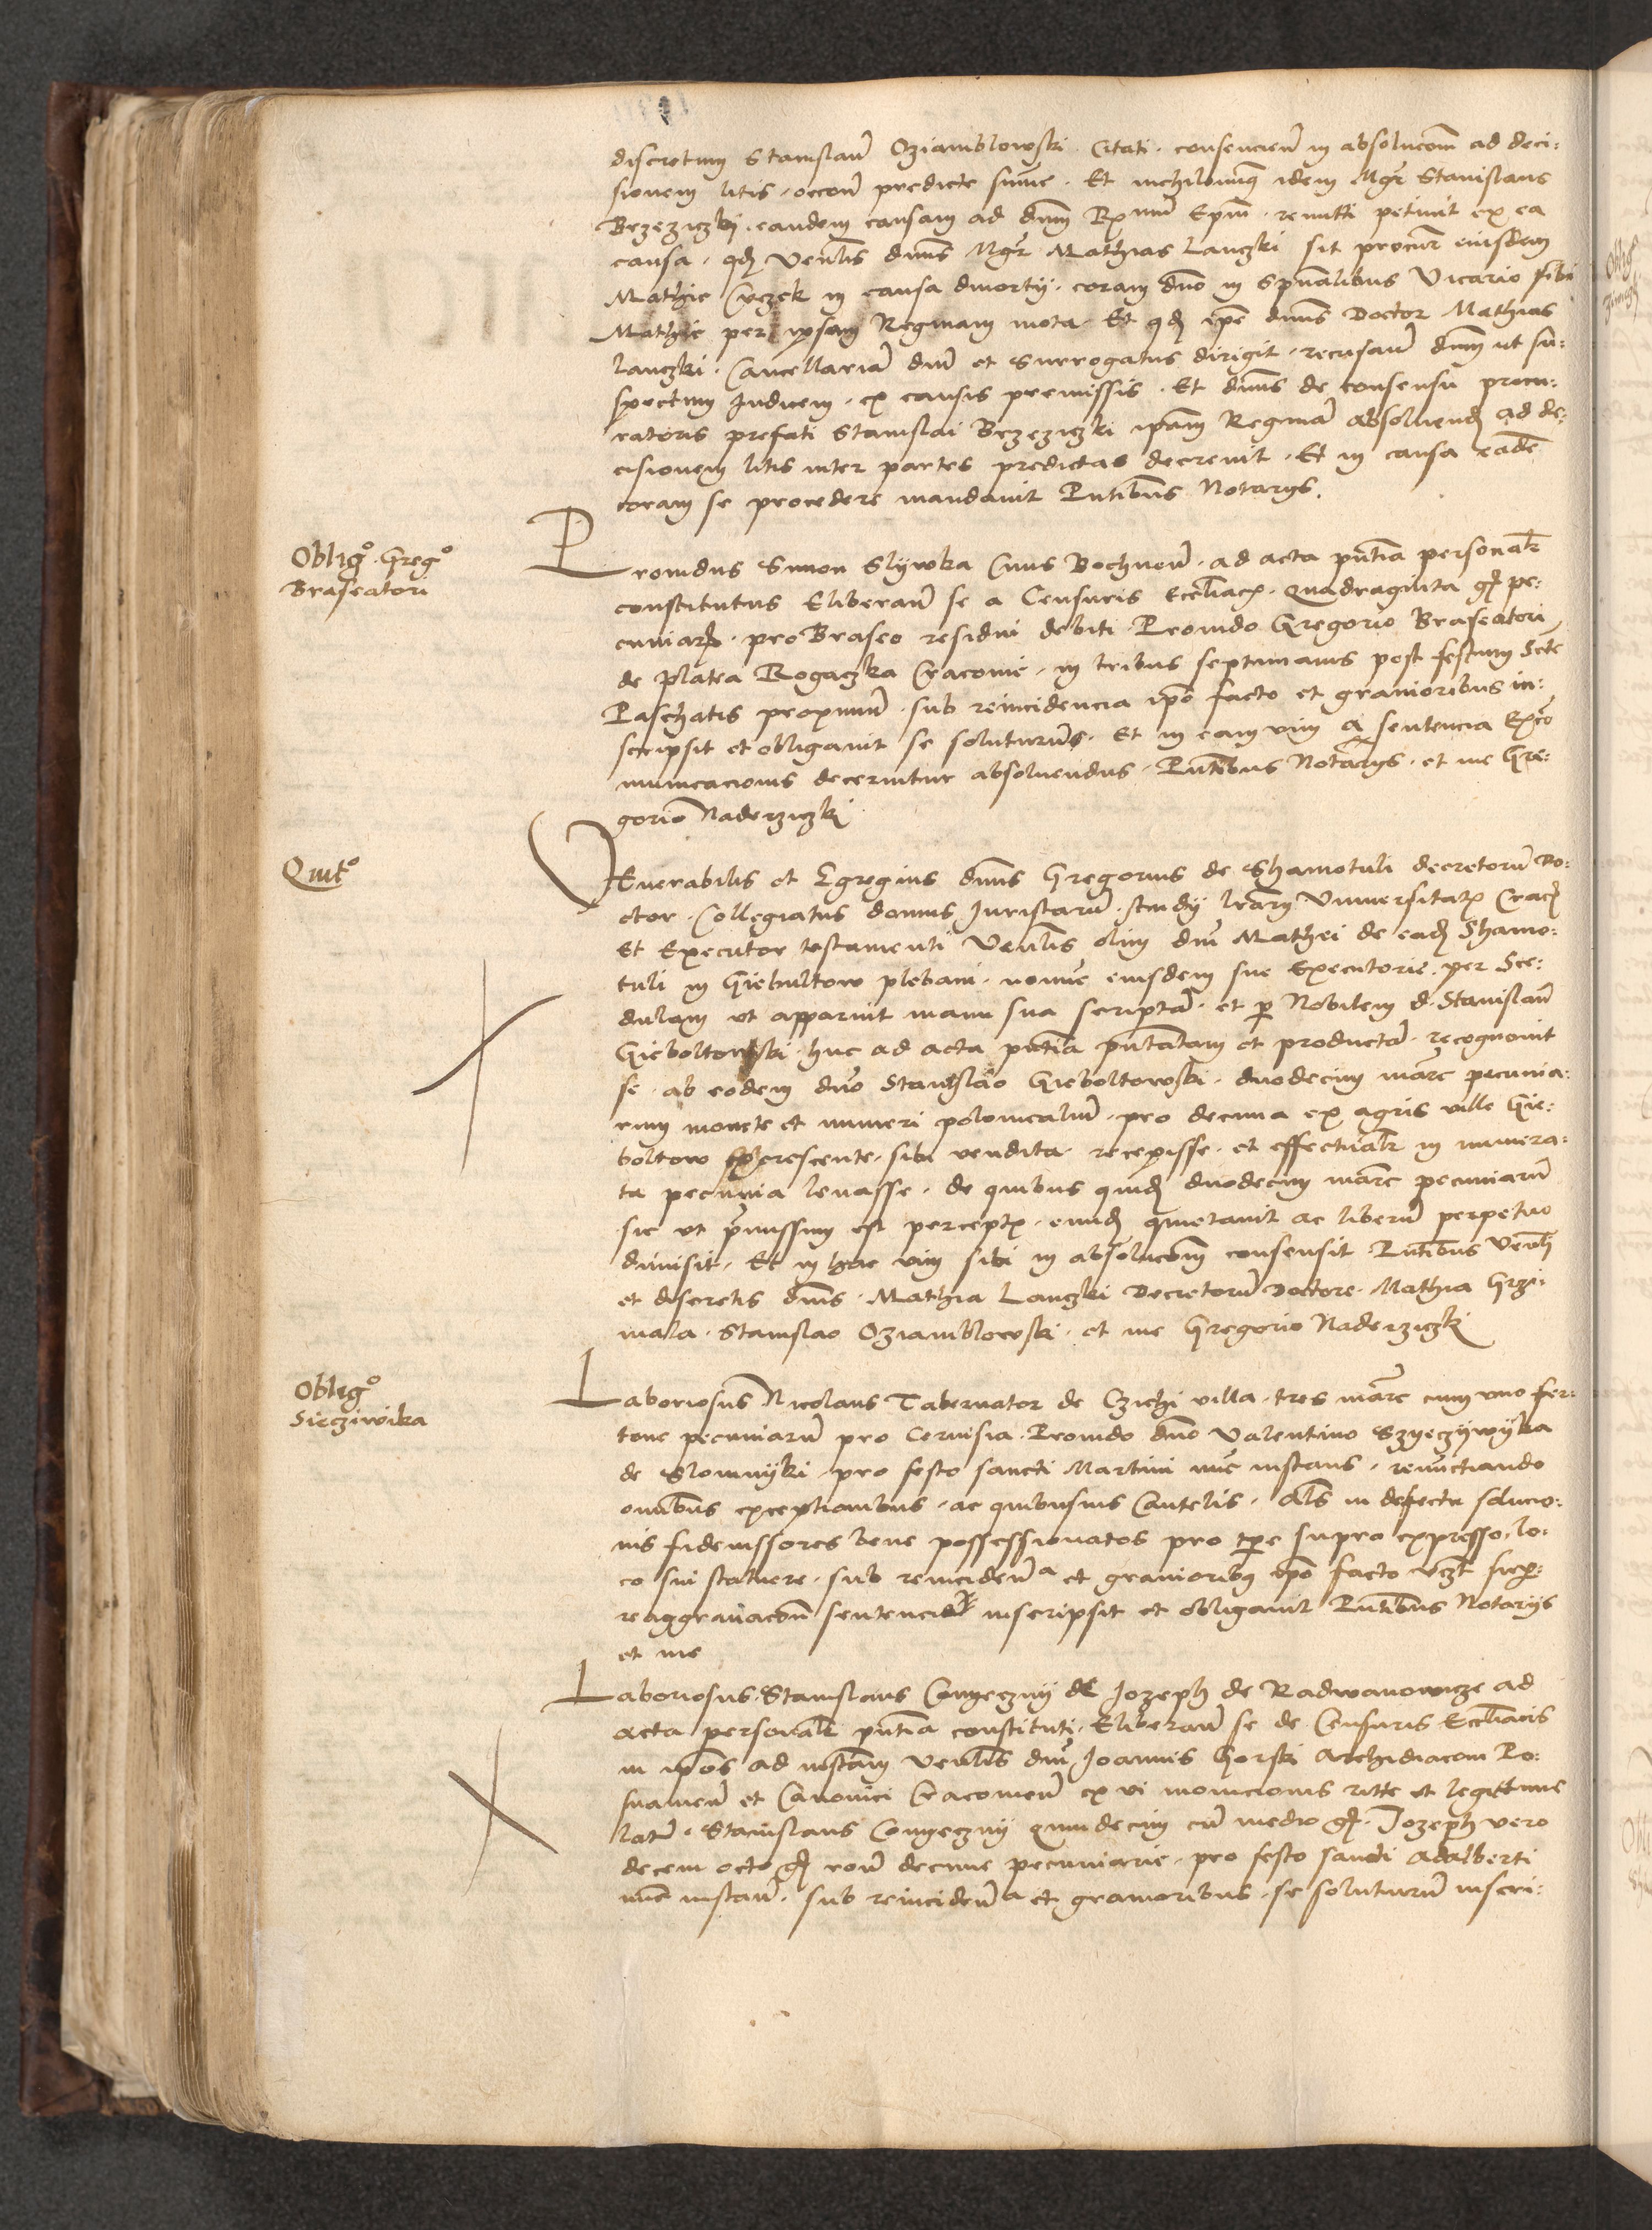 discretum Stanislaum Oziamblowski Citati consencien in absolucoem ad deci:
sionem litis, occoem predicte summe. Et nichilominus idem Mgr Stanislaus
Brzeziczki eandem causam ad dnum Rxmum Epm remitti petiuit ex ea
causa, qd Venlis dnus Mgr Mathias Lanczki sit procur eiusdem
Mathie Crczek in causa diuortij coram dno in Spualibus Vicario sibi
Mathie per ipsam Reginam mota. Et qd ipe dnus Doctor Mathias
Lanczki Cancellariam dni et Surrogatus dirigit, recusauit dnum ut su:
spectum Iudicem ex causis premissis. Et dnus de consensu procu:
ratoris prefati Stanislai Brzeziczki ipam Reginam absoluend ad de:
cisionem litis inter partes predictas decreuit. Et in causa eadem
coram se procedere mandauit Pntibus Notarijs.
Oblig° Greg°
Braseatori
Prouidus Simon Slijwka Ciuis Bochnen ad acta pntia personalr
constitutus Eliberan se a Censuris Eccliacis. Quadraginta gr pe:
cuniar pro Braseo residui debiti Prouido Gregorio Braseatori
de platea Rogaczka Cracouie in tribus septimanis post festum Scte
Paschatis proximum sub reincidencia ipo facto et grauioribus in:
scripsit et obligauit se soluturus. Et in eam vim a sentencia Exco
municacionis decernitur absoluendus. Pntibus Notarijs et me Gre:
gorio Naderziczki
Quit°
Venerabilis et Egregius dnus Gregorius de Shamotuli decretorum Do:
ctor Collegiatus domus Iuristarum studij lrarum Vniuersitatis Crac
Et Executor testamenti Venlis olim dni Mathei de ead Shamo:
tuli in Giebultow plebani nomine eiusdem sue Executorie per Sce:
dulam ut apparuit manu sua scriptam et p Nobilem d. Stanislaum
Gieboltowski huc ad acta pntia pntatam et productam recognouit
se ab eodem dno Stanislao Gieboltowski duodecim marc pecunia:
rum monete et numeri polonicalium pro decima ex agris ville Gie:
boltow excrescente sibi vendita recepisse et effectualr in numera:
ta pecunia leuasse. de quibus quid duodecim marc pecuniarum
sic ut pmissum est perceptis eund quietauit ac liberum perpetuo
dimisit. Et in hac vim sibi in absolucoem consensit Pntibus Venlb
et discretis dnis Mathia Lanczki Decretorum Doctore Mathia Grzi:
mala Stanislao Oziamblowski et me Gregorio Naderziczki
Oblig°
Siecziwika
Laboriosus Nicolaus Tabernator de Czichi villa tres marc cum vno fer:
tone pecuniarum pro Ceruisia Prouido dno Valentino Szyeczywyka
de Slomnyki pro festo sancti Martini nunc instans, renunctiando
omnibus exceptionibus ac quibusuis Cautelis. Als in defectu solucio:
nis fideiussores bene possessionatos pro tpe supra expresso lo:
co sui statuere sub reinciden a et grauioribus ipo facto vczt super
reaggrauacoem sentencia inscripsit et obligauit Pntibus Notarijs
et me
Laboriosus Stanislaus Conyeczny Iozeph de Radwanowicze ad
acta personalr pntia constituti Eliberan se de Censuris Eccliacis
in ipos ad instam Venlis dni Ioannis Gorski Archidiaconi Po:
snanien et Canonici Cracouien ex vi monicionis ritte et legittime
latis Stanislaus Conyeczny quindecim cum medio gr. Iozeph vero
decem octo gr roem decime pecuniarie pro festo sancti Adalberti
nunc instan sub reinciden a et grauioribus se soluturum inscri: